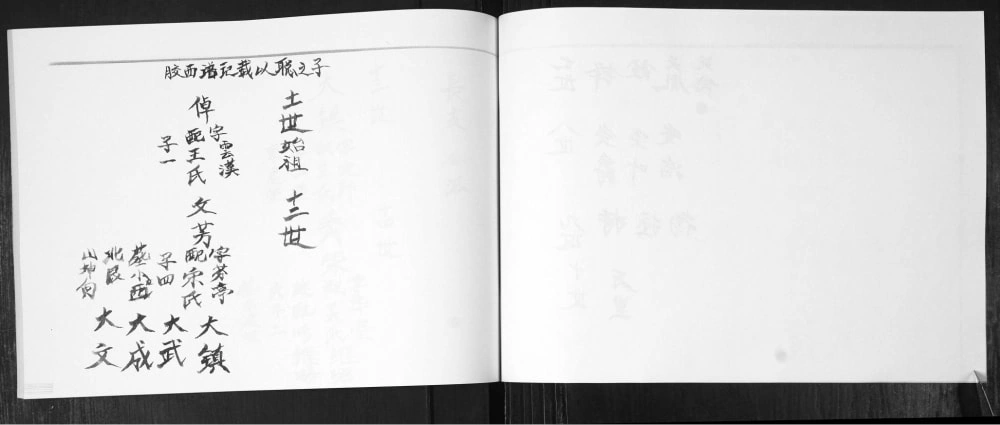 胶西谱记载以聪之子
十一世始祖
十二世
倬
字雲漢
配王氏
子一
文芳
字芳亭
配宋氏
子四
葬小西
北艮
山坤向
大鎮
大武
大成
大文